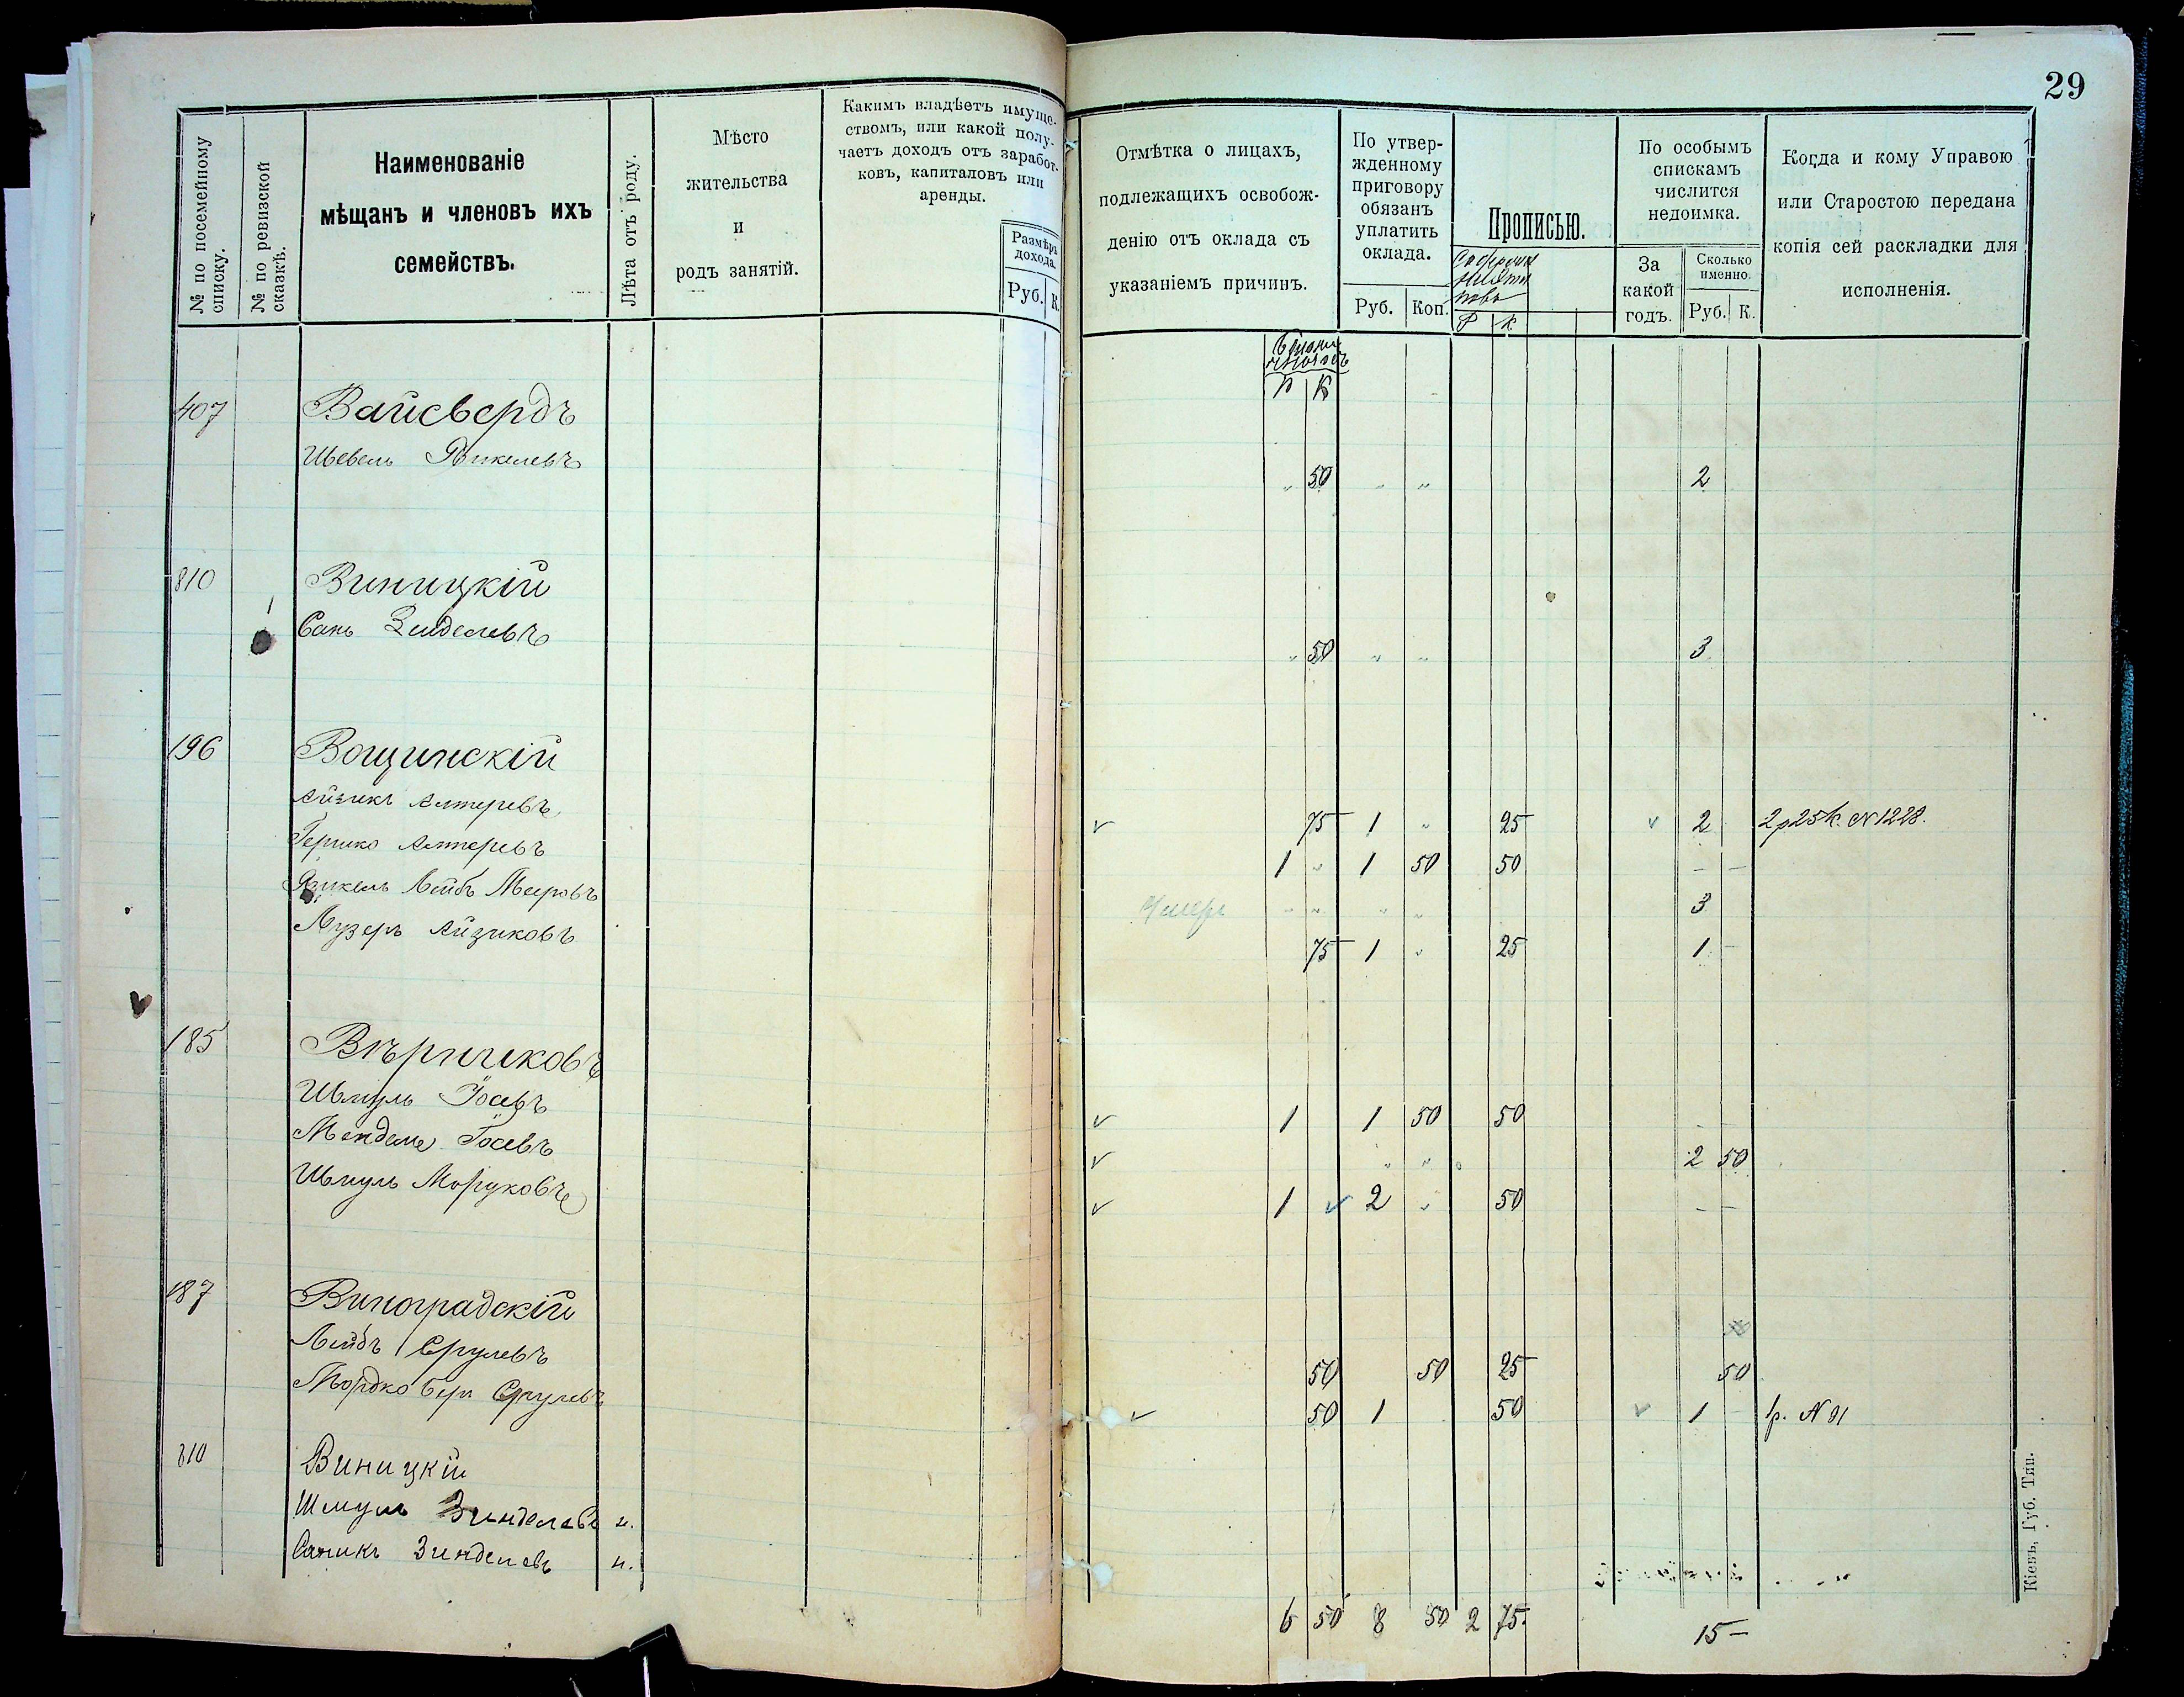 29
№ по посемейному списку.
№ по ревизской сказкѣ.
Наименованіе
мѣщанъ и членовъ ихъ
семействъ.
Лѣта отъ роду.
Мѣсто
жительства
и
родъ занятій.
Какимъ владѣетъ имуще-
ствомъ, или какой полу-
чаетъ доходъ отъ заработ-
ковъ, капиталовъ или
аренды.
Размѣръ
дохода.
Руб. К.
Отмѣтка о лицахъ,
подлежащихъ освобож-
денію отъ оклада съ
указаніемъ причинъ.
По утвер-
жденному
приговору
обязанъ
уплатить
оклада.
Руб. Коп.
Прописью.
Р К
По особымъ
спискамъ
числится
недоимка.
За
какой
годъ.
Сколько
именно.
Руб. К.
Когда и кому Управою
или Старостою передана
копія сей раскладки для
исполненія.
Р К
407 Вайсбердъ
Шевель Янкелевъ " 50 " " 2
810 Виницкій
Сань Зинделевъ " 50 " " 3
196 Вощинскій
Айзикъ Алтеревъ 75 1 " 25 2 2р25к. N1228.
Гершко Алтеревъ 1 " 1 50 50 – –
Янкель Лейбъ Мееровъ Умеръ " " " " 3
Лузеръ Айзиковъ 75 1 " 25 1 –
185 Вѣрниковъ
Шмуль Іосевъ 1 1 50 50
Мендель Іосевъ " " 2 50
Шмуль Моруковъ 1 2 " 50 – –
187 Виноградскій
Лейбъ Срулевъ 50 50 25 50
Мордко Бер Срулевъ 50 1 50 1 – 1р. N 91
810 Виницкій
Шмуль Зинделевъ н.
Саникъ Зинделевъ н.
6 50 8 50 2 75. 15 –
Кіевъ, Губ. Тип.